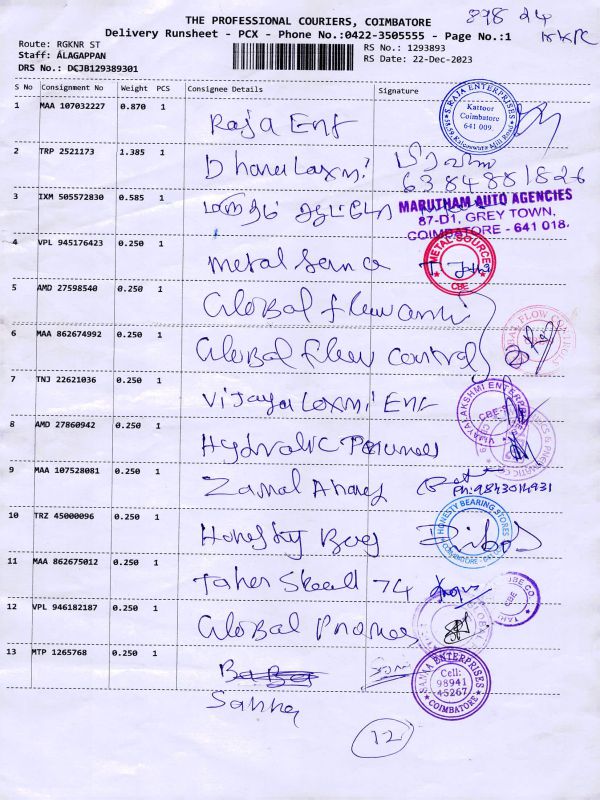 THE PROFESSIONAL COURIERS, COIMBATORE
Delivery Runsheet - PCX - Phone No.:0422-3505555 - Page No.:1
878 24
Route: RGKNR ST
Staff: ÁLAGAPPAN
DRS No.: DCJB129389301
RS No.: 1293893
RS Date: 22-Dec-2023
S No Consignment No Weight PCS Consignee Details Signature
1 MAA 107032227 0.870 1 Raja Ent
S.RAJA ENTERPRISES
Kattoor
Coimbatore
641 009.
2 TRP 2521173 1.385 1 Dhana Laxmi
6384881826
3 IXM 505572830 0.585 1
MARUTHAM AUTO AGENCIES
87-D1, GREY TOWN,
COIMBATORE - 641 018.
4 VPL 945176423 0.250 1 Metal
METAL SOURCE
CBE
5 AMD 27598540 0.250 1 Global flow
6 MAA 862674992 0.250 1 Global flow control
GLOBAL FLOW CONTROLS
7 TNJ 22621036 0.250 1 Vijaya Laxmi Ent
VIJAYALAKSHMI ENTERPRISES
8 AMD 27860942 0.250 1
9 MAA 107528081 0.250 1
Ph:9843014931
10 TRZ 45000096 0.250 1 Honesty
HONESTY BEARING STORES
11 MAA 862675012 0.250 1 Taher 74
TUBE CO.
CBE
12 VPL 946182187 0.250 1 Global
GLOBAL
13 MTP 1265768 0.250 1
Sanka
SANKA ENTERPRISES
Cell:
98941
45267
COIMBATORE
12